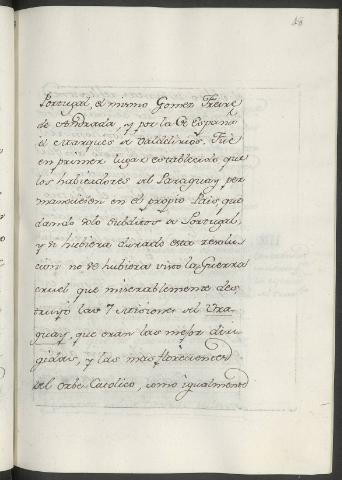 18
Portugal, el mismo Gomez Freire
de Andrada, y por la de España
el Marques de Valdelirios. Fue
en primer lugar establecido que
los habitadores del Paraguay per
maneciesen en el propio Pais, que
dando solo subditos de Portugal,
y si hubiera durado esta resolu
cion no se hubiera visto la Guerra
cruel que miserablemente des
truyò las 7 Misiones del Ura-
guay, que eran las mejor diri
gidas, y las mas florecientes
del Orbe Catolico, como igualmente